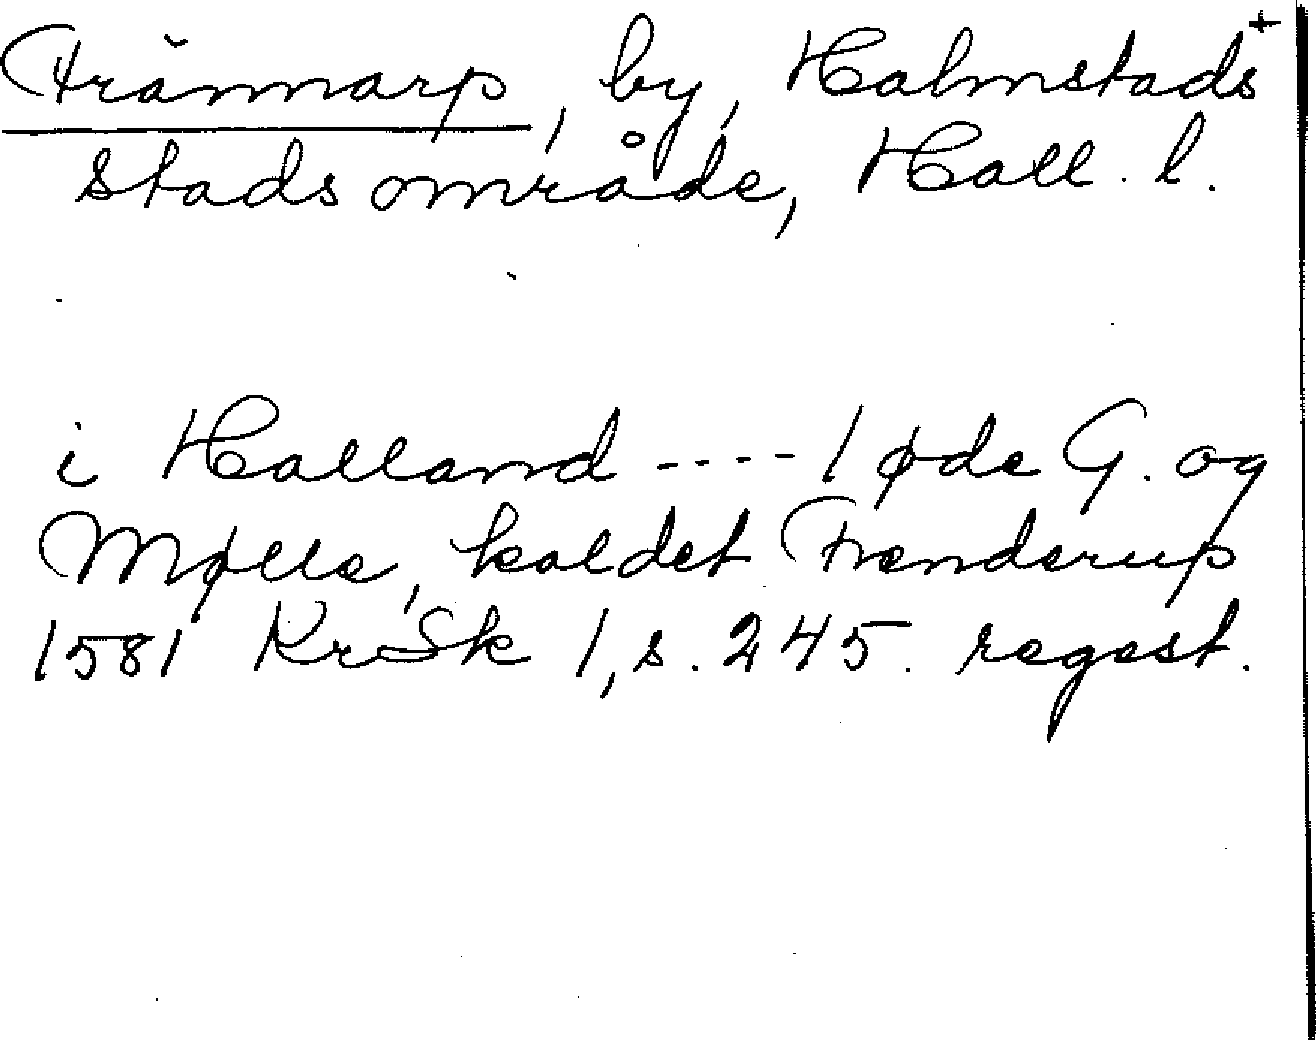 Trännarp, by, Halmstads +
stadsområde, Hall. l.
i Halland ---- 1 øde G. og
Mølle, kaldet Trenderup
1581 KrSk 1, s. 245. regest.